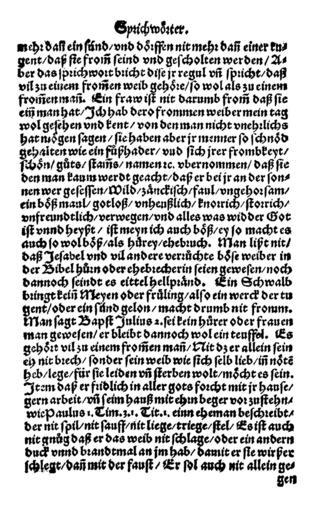 Sprichwörter.
mehr dañ ein sünd/vnd dörffen nit mehr dañ einer tu-
gent/daß sie from̃ seind vnd gescholten werden/A-
ber das sprichwort bricht dise jr regul vñ spricht/daß
vil zu einem frommen weib gehöre/so wol als zu einem
frommen mañ. Ein fraw ist nit darumb from̃ daß sie
ein mañ hat/Ich hab der o frommen weiber mein tag
wol gesehen vnd kent/von den man nicht vnehrlichs
hat mögen sagen/sie haben aber jr männer so schnöd
gehalten wie ein fůßhader/vnd sich jrer frombkeyt/
schön/gůts/stam̃s/namen ꝛc. vbernommen/daß sie
den man kaum werdt geacht/daß er bei jr an der son-
nen wer gesessen/Wild/zänckisch/faul/vngehorsam/
ein böß maul/gotloß/vnheußlich/knorrich/storrich/
vnfreundtlich/verwegen/vnd alles was wider Got
ist vnnd heyßt/ist meyn ich auch böß/ey so macht es
auch so wol böß/als hůrey/ehebruch. Man lißt nit/
daß Jesabel vnd vil andere verrůchte böse weiber in
der Bibel hůrn oder ehebrecherin seien gewesen/noch
dannoch seindt es eittel hellpränd. Ein Schwalb
bringt kein Meyen oder frůling/also ein werck der tu
gent/oder ein sünd gelon/macht drumb nit fromm.
Man sagt Bapst Julius 2. sei kein hůrer oder frauen
man gewesen/er bleibt dannoch wol ein teuffel. Es
gehört vil zu einem frommen mañ/Nit dz er allein sein
ey nit brech/sonder sein weib wie sich selb lieb/in nöte
heb/lege/für sie leiden vñ sterben wolt/möcht es sein.
Item daß er fridlich in aller gots forcht mit jr hause/
gern arbeit/vñ seim hauß mit ehrn beger vor zustehn/
wie Paulus 1. Tim.3. 1. Tit.1. einn eheman beschreibt/
der nit spil/nit sauff/nit liege/triege/stel/Es ist auch
nit gnůg daß er das weib nit schlage/oder ein andern
duck vnnd brandtmal an jm hab/damit er sie wirsser
schlegt/dañ mit der faust/Er sol auch nit allein ge-
gen